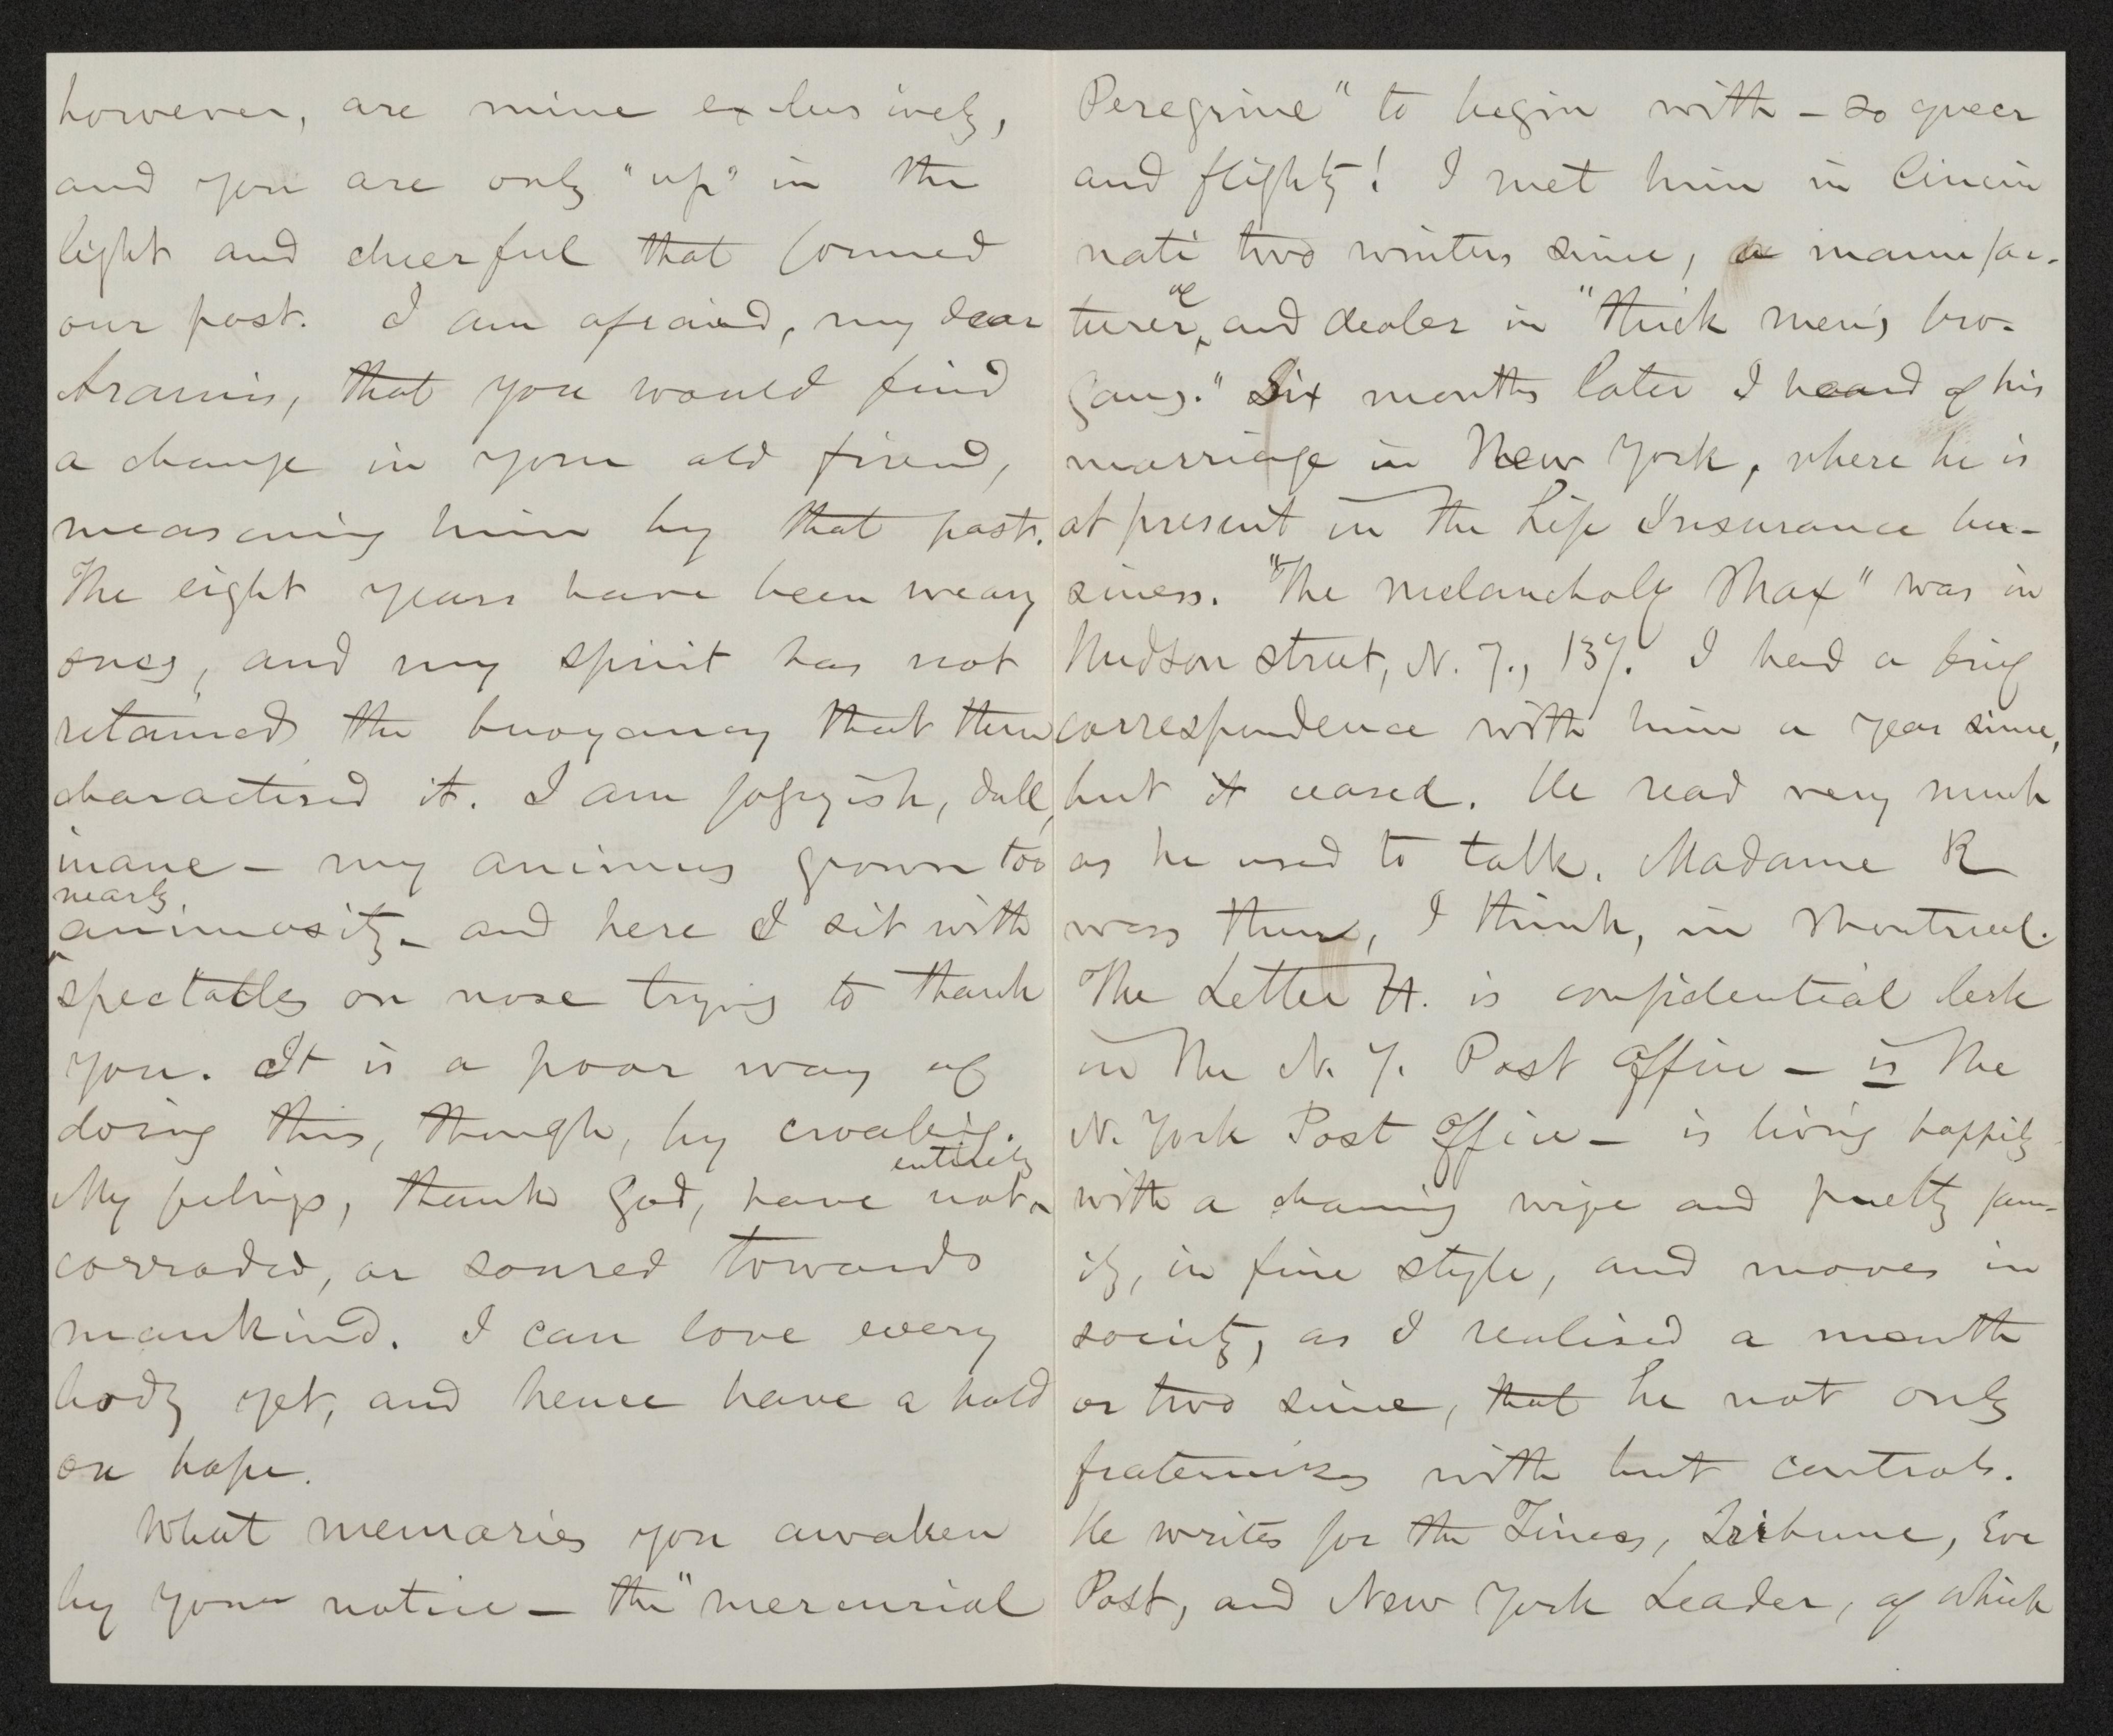 however, are mine exclusively,
and you are only "up" in the
light and cheerful that formed
our past. I am afraid, my dear
Aramis, that you would find
a change in your old friend,
measuring him by that past.
The eight years have been weary
ones, and my spirit has not
retained the buoyancy that then
characterised it. I am fogyish, dull,
inane – my animus grown too
nearly
animosity – and here I sit with
spectacles on nose trying to thank
you. It is a poor way of
doing this, though, by croaking.
entirely
My feelings, thank God, have not
corroded, or soured towards
mankind. I can love every
body yet, and hence have a hold
on hope.
What memories you awaken
by your notice – the "mercurial
Peregrine" to begin with – so queer
and flighty! I met him in Cincin
nati two winters since, a manufac-
of
turer, and dealer in "thick men's bro-
gans." Six months later I heard of his
marriage in New York, where he is
at present in the Life Insurance bu-
siness. "The melancholy Max" was in
Hudson street, N. Y., 137. I had a brief
correspondence with him a year since,
but it ceased. He read very much
as he used to talk. Madame R
was then, I think, in Montreal.
The Letter H. is confidential clerk
in the N. Y. Post Office – is the
N. York Post Office – is living happily
with a charming wife and pretty fam-
ily, in fine style, and moves in
society, as I realised a month
or two since, that he not only
fraternizes with but controls.
He writes for the Times, Tribune, Eve
Post, and New York Leader, of which